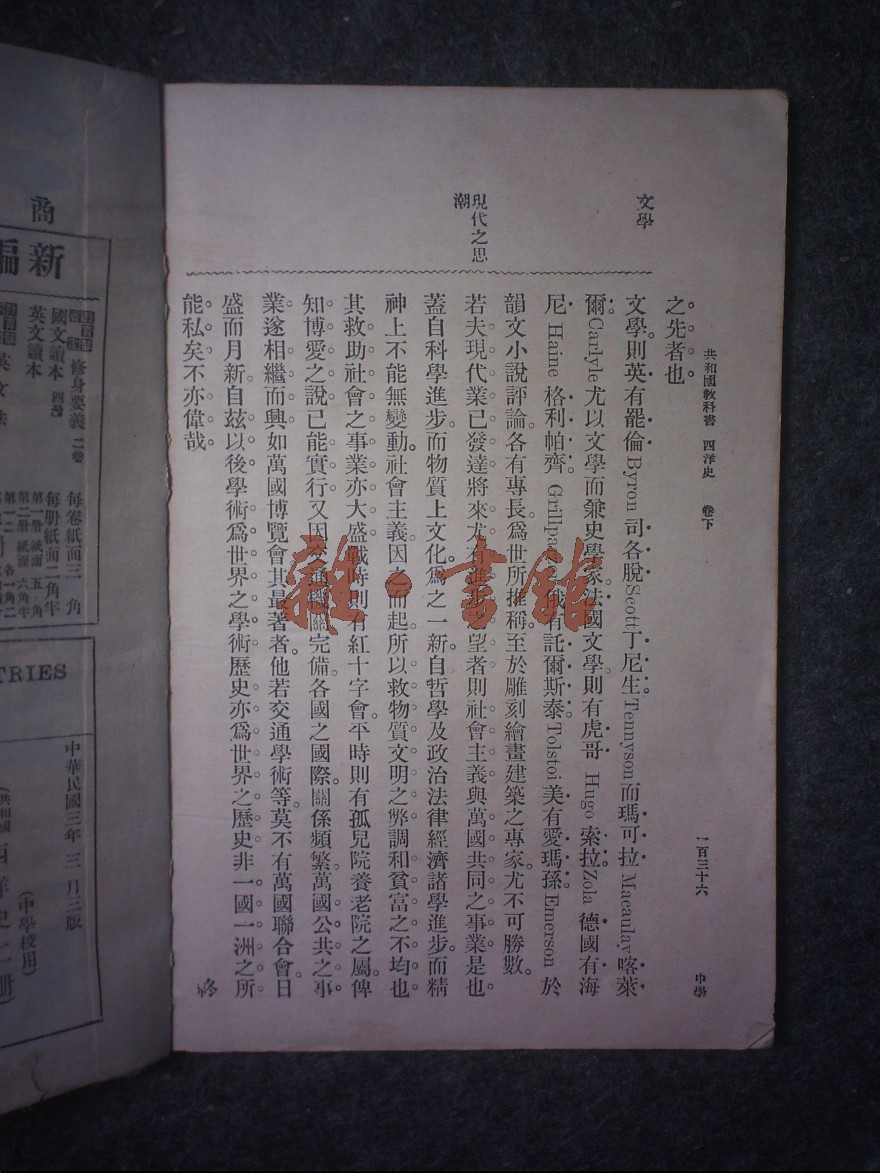 共和國教科書 西洋史 卷下
一百三十六
中學
之先者也
文學
文學則英有罷倫Byron司各脫Scott丁尼生Tennyson而瑪可拉Macaulay喀萊
爾Carlyle尤以文學而兼史學家法國文學則有虎哥 Hugo 索拉Zola 德國有海
尼 Haine 格利帕齊 俄有託爾斯泰Tolstoi美有愛瑪孫Emerson於
韻文小說評論各有專長爲世所推稱至於雕刻繪畫建築之專家尤不可勝數
現代之思
潮
若夫現代業已發達將來尤有進步之望者則社會主義與萬國共同之事業是也
蓋自科學進步而物質上文化爲之一新自哲學及政治法律經濟諸學進步而精
神上不能無變動社會主義因之而起所以救物質文明之弊調和貧富之不均也
其救助社會之事業亦大盛戰時則有紅十字會平時則有孤兒院養老院之屬俾
知博愛之說已能實行又因交通機關完備各國之國際關係頻繁萬國公共之事
業遂相繼而興如萬國博覽會其最著者他若交通學術等莫不有萬國聯合會日
盛而月新自茲以後學術爲世界之學術歷史亦爲世界之歷史非一國一洲之所
能私矣不亦偉哉
終
雜·書館
商
新編
修身要義 二卷 每卷紙面三角
國文讀本 四册 每册紙面二角半
英文讀本
英文法
TRIES
中華民國三年三月三版
(中學校用)
(共和國
西洋史二册)